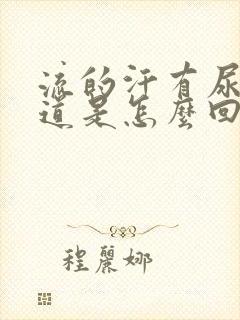 流的汗有尿
道是怎麼回
程麗娜